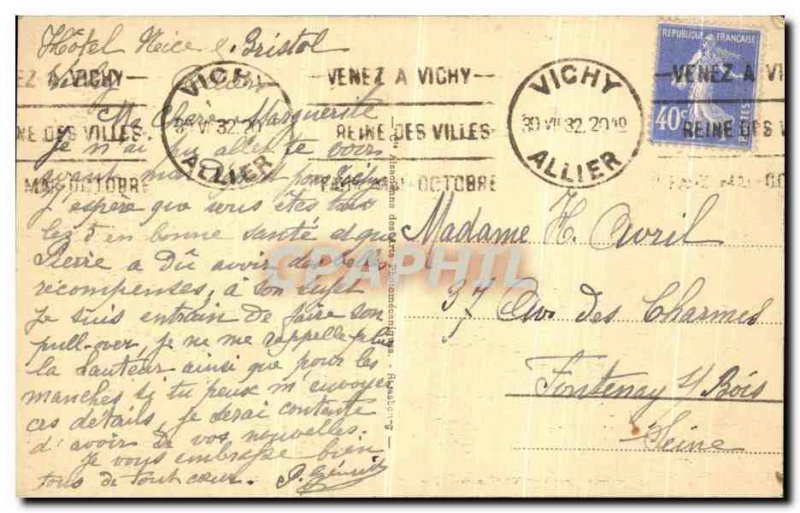 Hôtel Nice & Bristol
Vichy Allier
VENEZ A VICHY
REINE DES VILLES
MAI-OCTOBRE
VICHY
30 VII 32. 20
ALLIER
VENEZ A VICHY
REINE DES VILLES
MAI-OCTOBRE
VICHY
30 VII 32. 20
ALLIER
VENEZ A VI
REINE DES V
REPUBLIQUE FRANÇAISE
40c
POSTES
Ma Chère Marguerite
Je n'ai pu aller te voir
avant mon pour Vichy
J'espère que vous êtes tous
les 5 en bonne santé et que
Pierre a dû avoir de belles
récompenses, à son sujet
Je suis entrain de faire son
pull-over, je ne me rappelle plus
la hauteur ainsi que pour les
manches si tu peux m'envoyer
ces détails, je serai contente
d'avoir de vos nouvelles.
Je vous embrasse bien
tous de tout cœur.
Madame H. Avril
37 Av. des Charmes
Fontenay s/ Bois
Seine
CPAPHIL